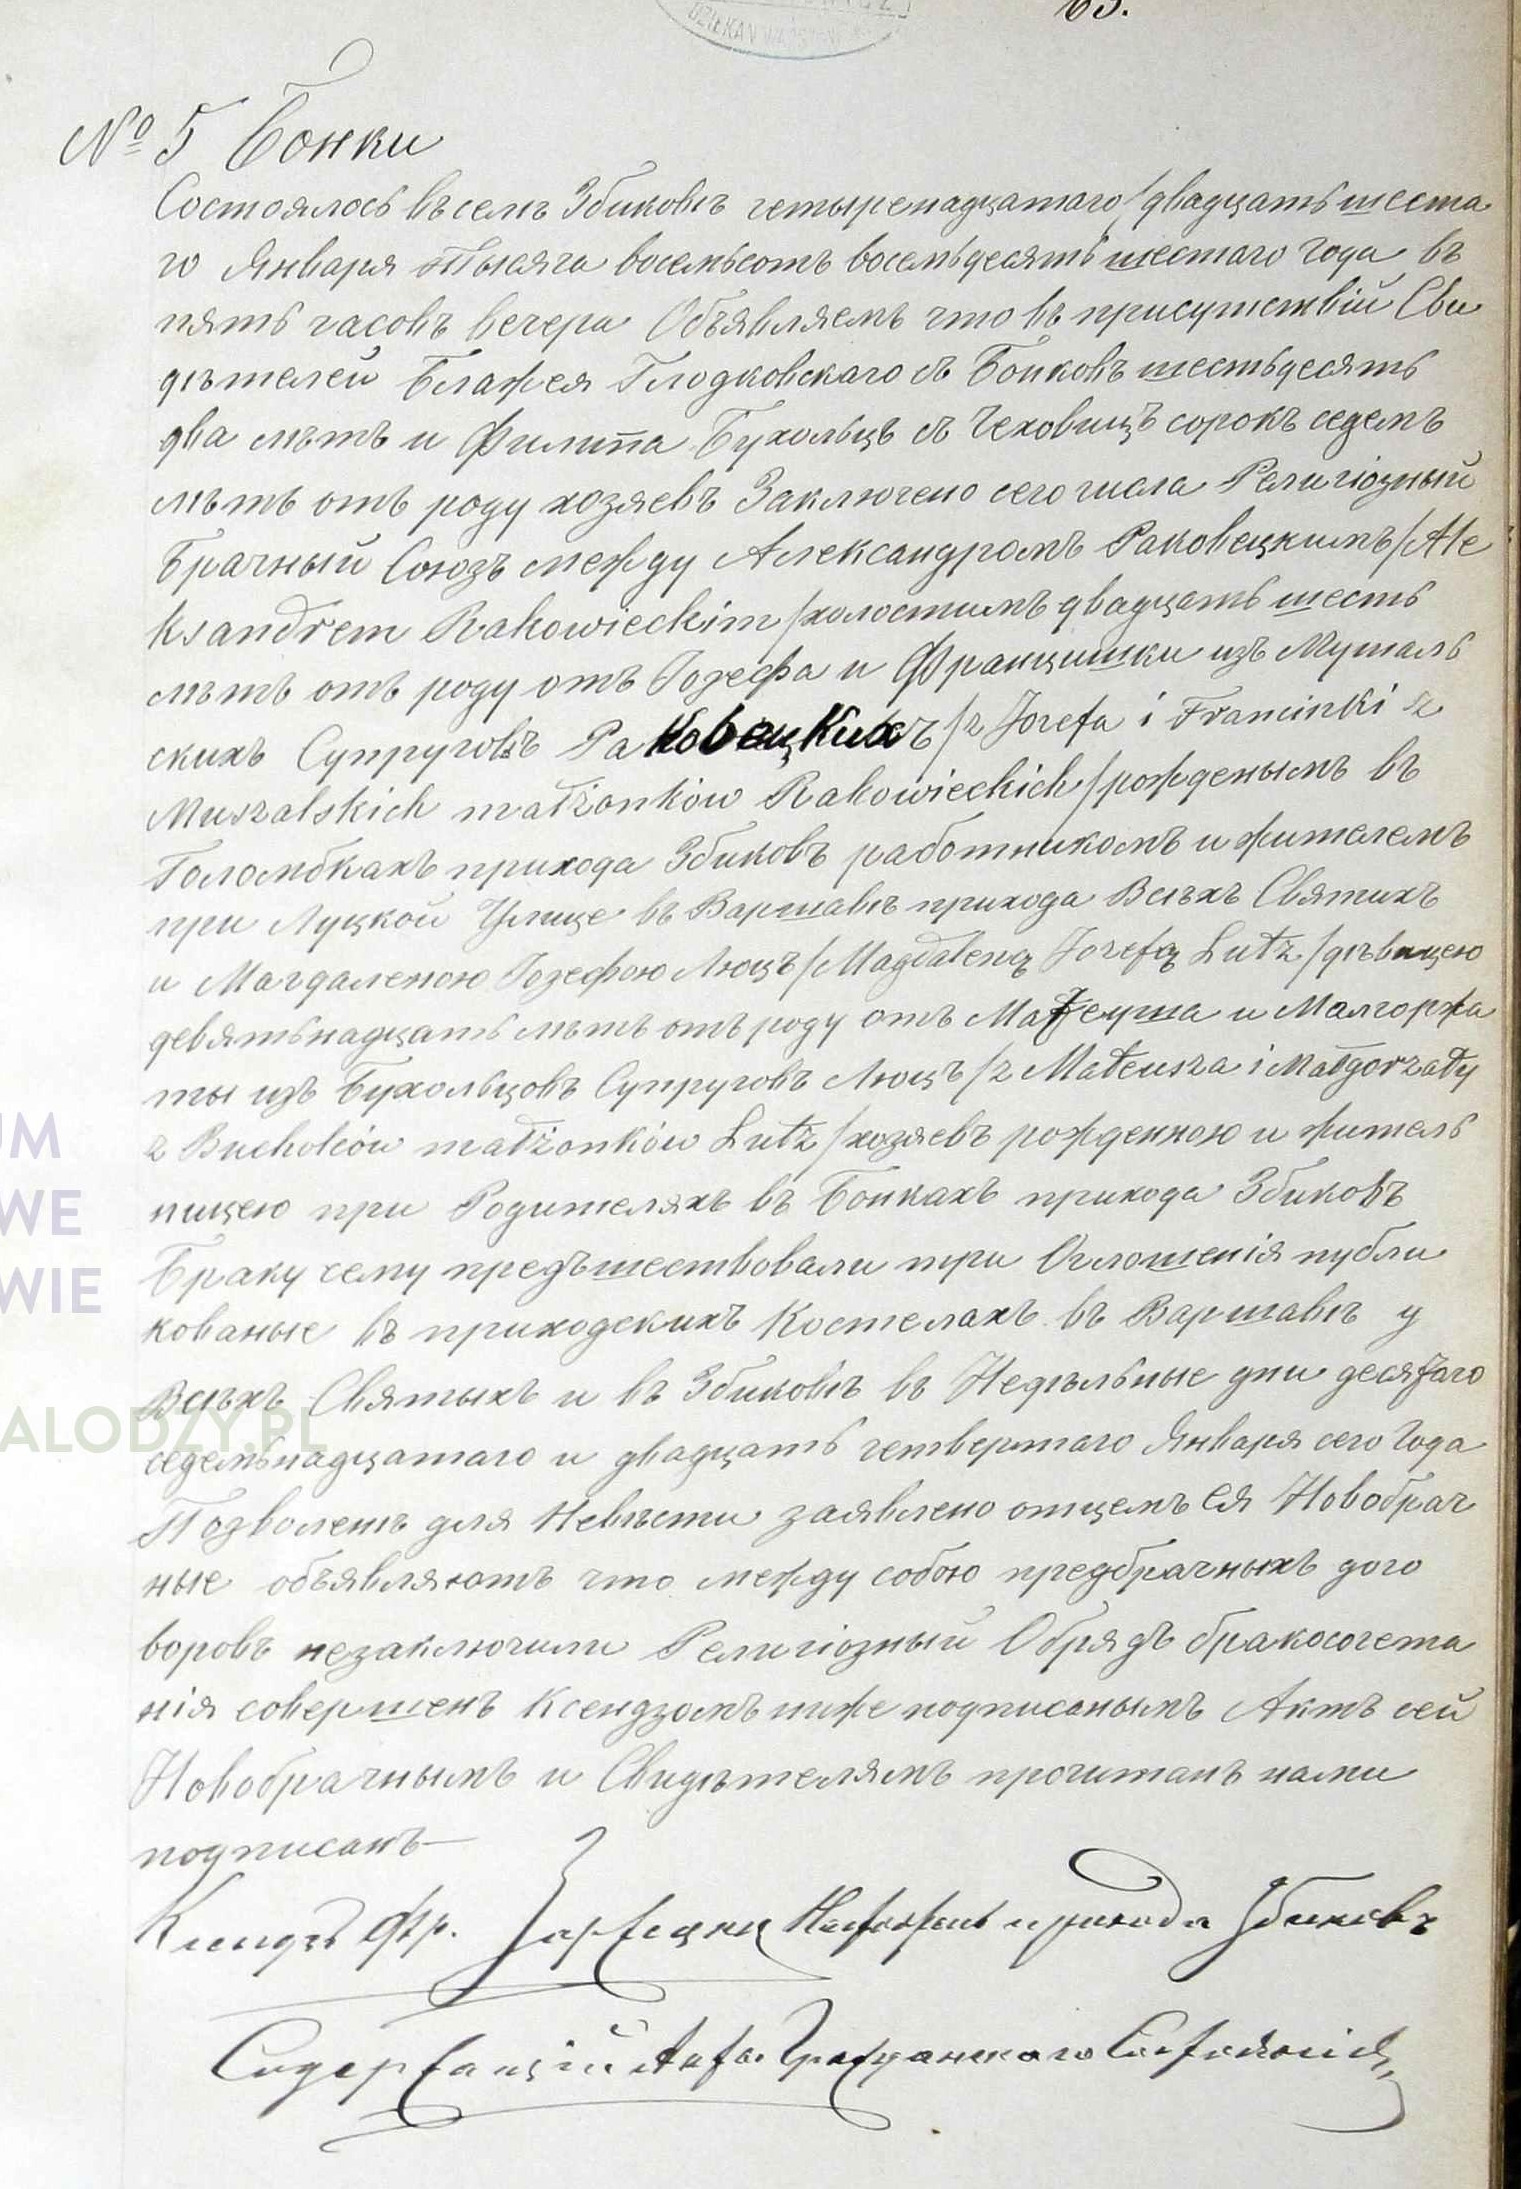 63.
№ 5 Бонки
Состоялось въ селѣ Збиковѣ четыренадцатаго /двадцать шеста
го Января Тысяча восемьсотъ восемьдесятъ шестаго года въ
пять часовъ вечера Объявляемъ что въ присутствіи Сви
дѣтелей Блажея Глодковскаго съ Бонковъ шестьдесятъ
два лѣтъ и Филипа Бухольцъ съ Чеховицъ сорокъ седемъ
лѣтъ отъ роду хозяевъ Заключено сего числа Религіозный
Брачный Союзъ между Александромъ Раковецкимъ /Ale
ksandrem Rakowieckim/ холостимъ двадцать шесть
лѣтъ отъ роду отъ Іозефа и Францишки изъ Мушаль
скихъ Супруговъ Раковецкихъ /z Jozefa i Francinki z
Muszalskich małżonków Rakowieckich/ рожденымъ въ
Голомбкахъ прихода Збиковъ работникомъ и жителемъ
при Луцкой Улице въ Варшавѣ прихода Всѣхъ Святихъ
и Магдаленою Іозефою Люцъ /Magdaleną Jozefą Lutz/ дѣвицею
девятьнадцать лѣтъ отъ роду отъ Матеуша и Малгоржа
ты изъ Бухольцовъ Супруговъ Люцъ /z Mateusza i Małgorzaty
z Bucholców małżonków Lutz/ хозяевъ рожденною и житель
ницею при Родителяхъ въ Бонкахъ прихода Збиковъ
Браку сему предъшествовали три Оглошенія публи
кованые въ приходскихъ Костелахъ въ Варшавѣ у
Всѣхъ Святыхъ и въ Збиковѣ въ Недѣльные дни десятаго
седемьнадцатаго и двадцать четвертаго Января сего Года
Позволенѣ для Невѣсти заявлено отцемъ ея Новобрач
ные объявляютъ что между собою предбрачныхъ дого
воровъ незаключили Религіозный Обрядъ бракосочета
нія совершенъ Ксендзомъ ниже подписанымъ Актъ сей
Новобрачнымъ и Свидѣтелямъ прочитанъ нами
подписанъ
Ксендзъ Фр. прихода Збиковъ
Содержащій Акта Гражданскаго Состоянія
UM
WE
WIE
ALODZY.PL